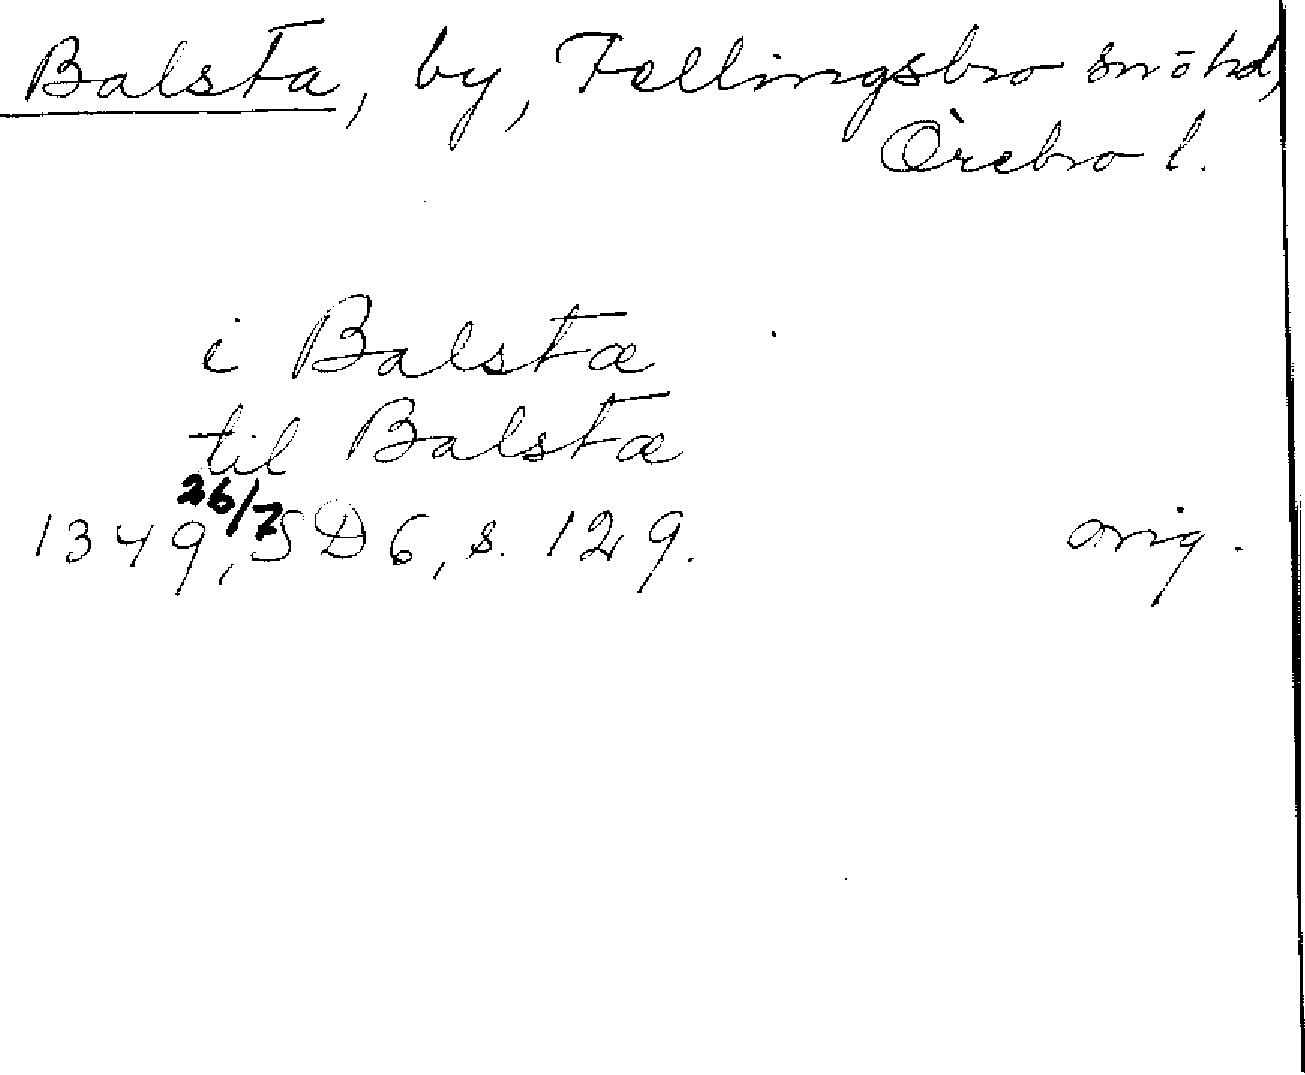 Balsta, by, Fellingsbro sn o hd,
Örebro l.
i Balstæ
til Balstæ
26/7
1349, SD 6, s. 129. orig.